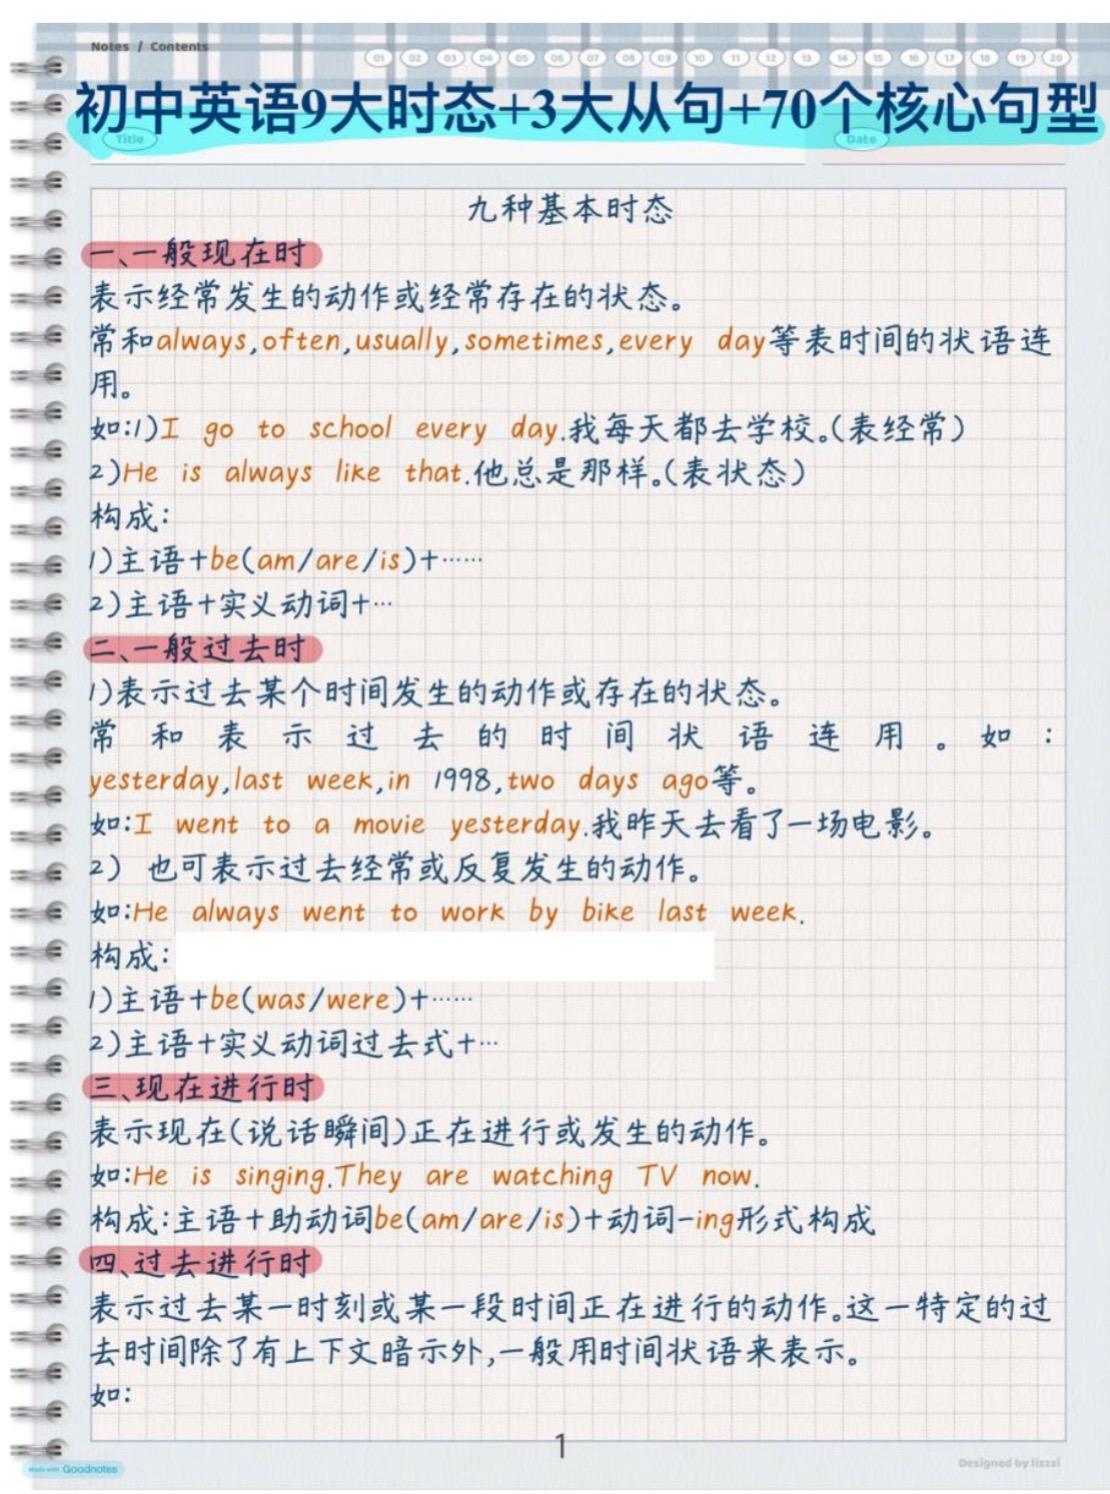 Notes / Contents
01 02 03 04 05 06 07 08 09 10 11 12 13 14 15 16 17 18 19 20
初中英语9大时态+3大从句+70个核心句型
Title
Date
九种基本时态
一、一般现在时
表示经常发生的动作或经常存在的状态。
常和always,often,usually,sometimes,every day等表时间的状语连
用。
如:1)I go to school every day.我每天都去学校。(表经常)
2)He is always like that.他总是那样。(表状态)
构成:
1)主语+be(am/are/is)+……
2)主语+实义动词+…
二、一般过去时
1)表示过去某个时间发生的动作或存在的状态。
常和表示过去的时间状语连用。如:
yesterday,last week,in 1998,two days ago等。
如:I went to a movie yesterday.我昨天去看了一场电影。
2) 也可表示过去经常或反复发生的动作。
如:He always went to work by bike last week.
构成:
1)主语+be(was/were)+……
2)主语+实义动词过去式+…
三、现在进行时
表示现在(说话瞬间)正在进行或发生的动作。
如:He is singing.They are watching TV now.
构成:主语+助动词be(am/are/is)+动词-ing形式构成
四、过去进行时
表示过去某一时刻或某一段时间正在进行的动作。这一特定的过
去时间除了有上下文暗示外,一般用时间状语来表示。
如:
1
Made with Goodnotes
Designed by lizzzi